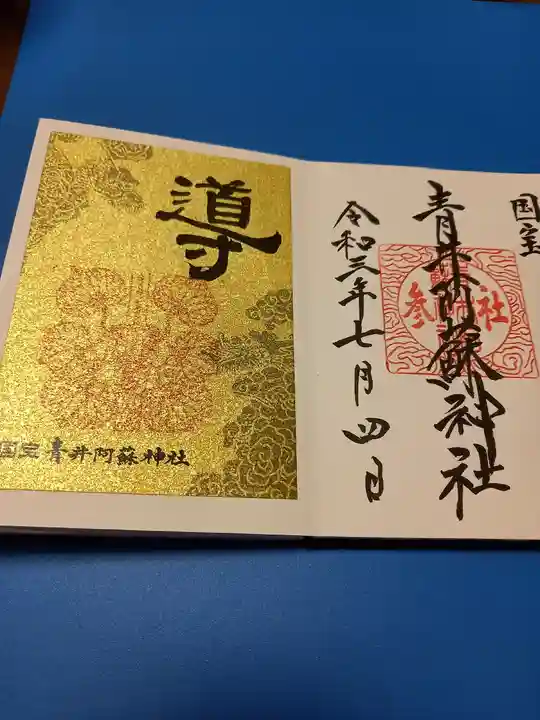 国宝
青井阿蘇神社
参 社
令和三年七月四日
導
国宝 青井阿蘇神社